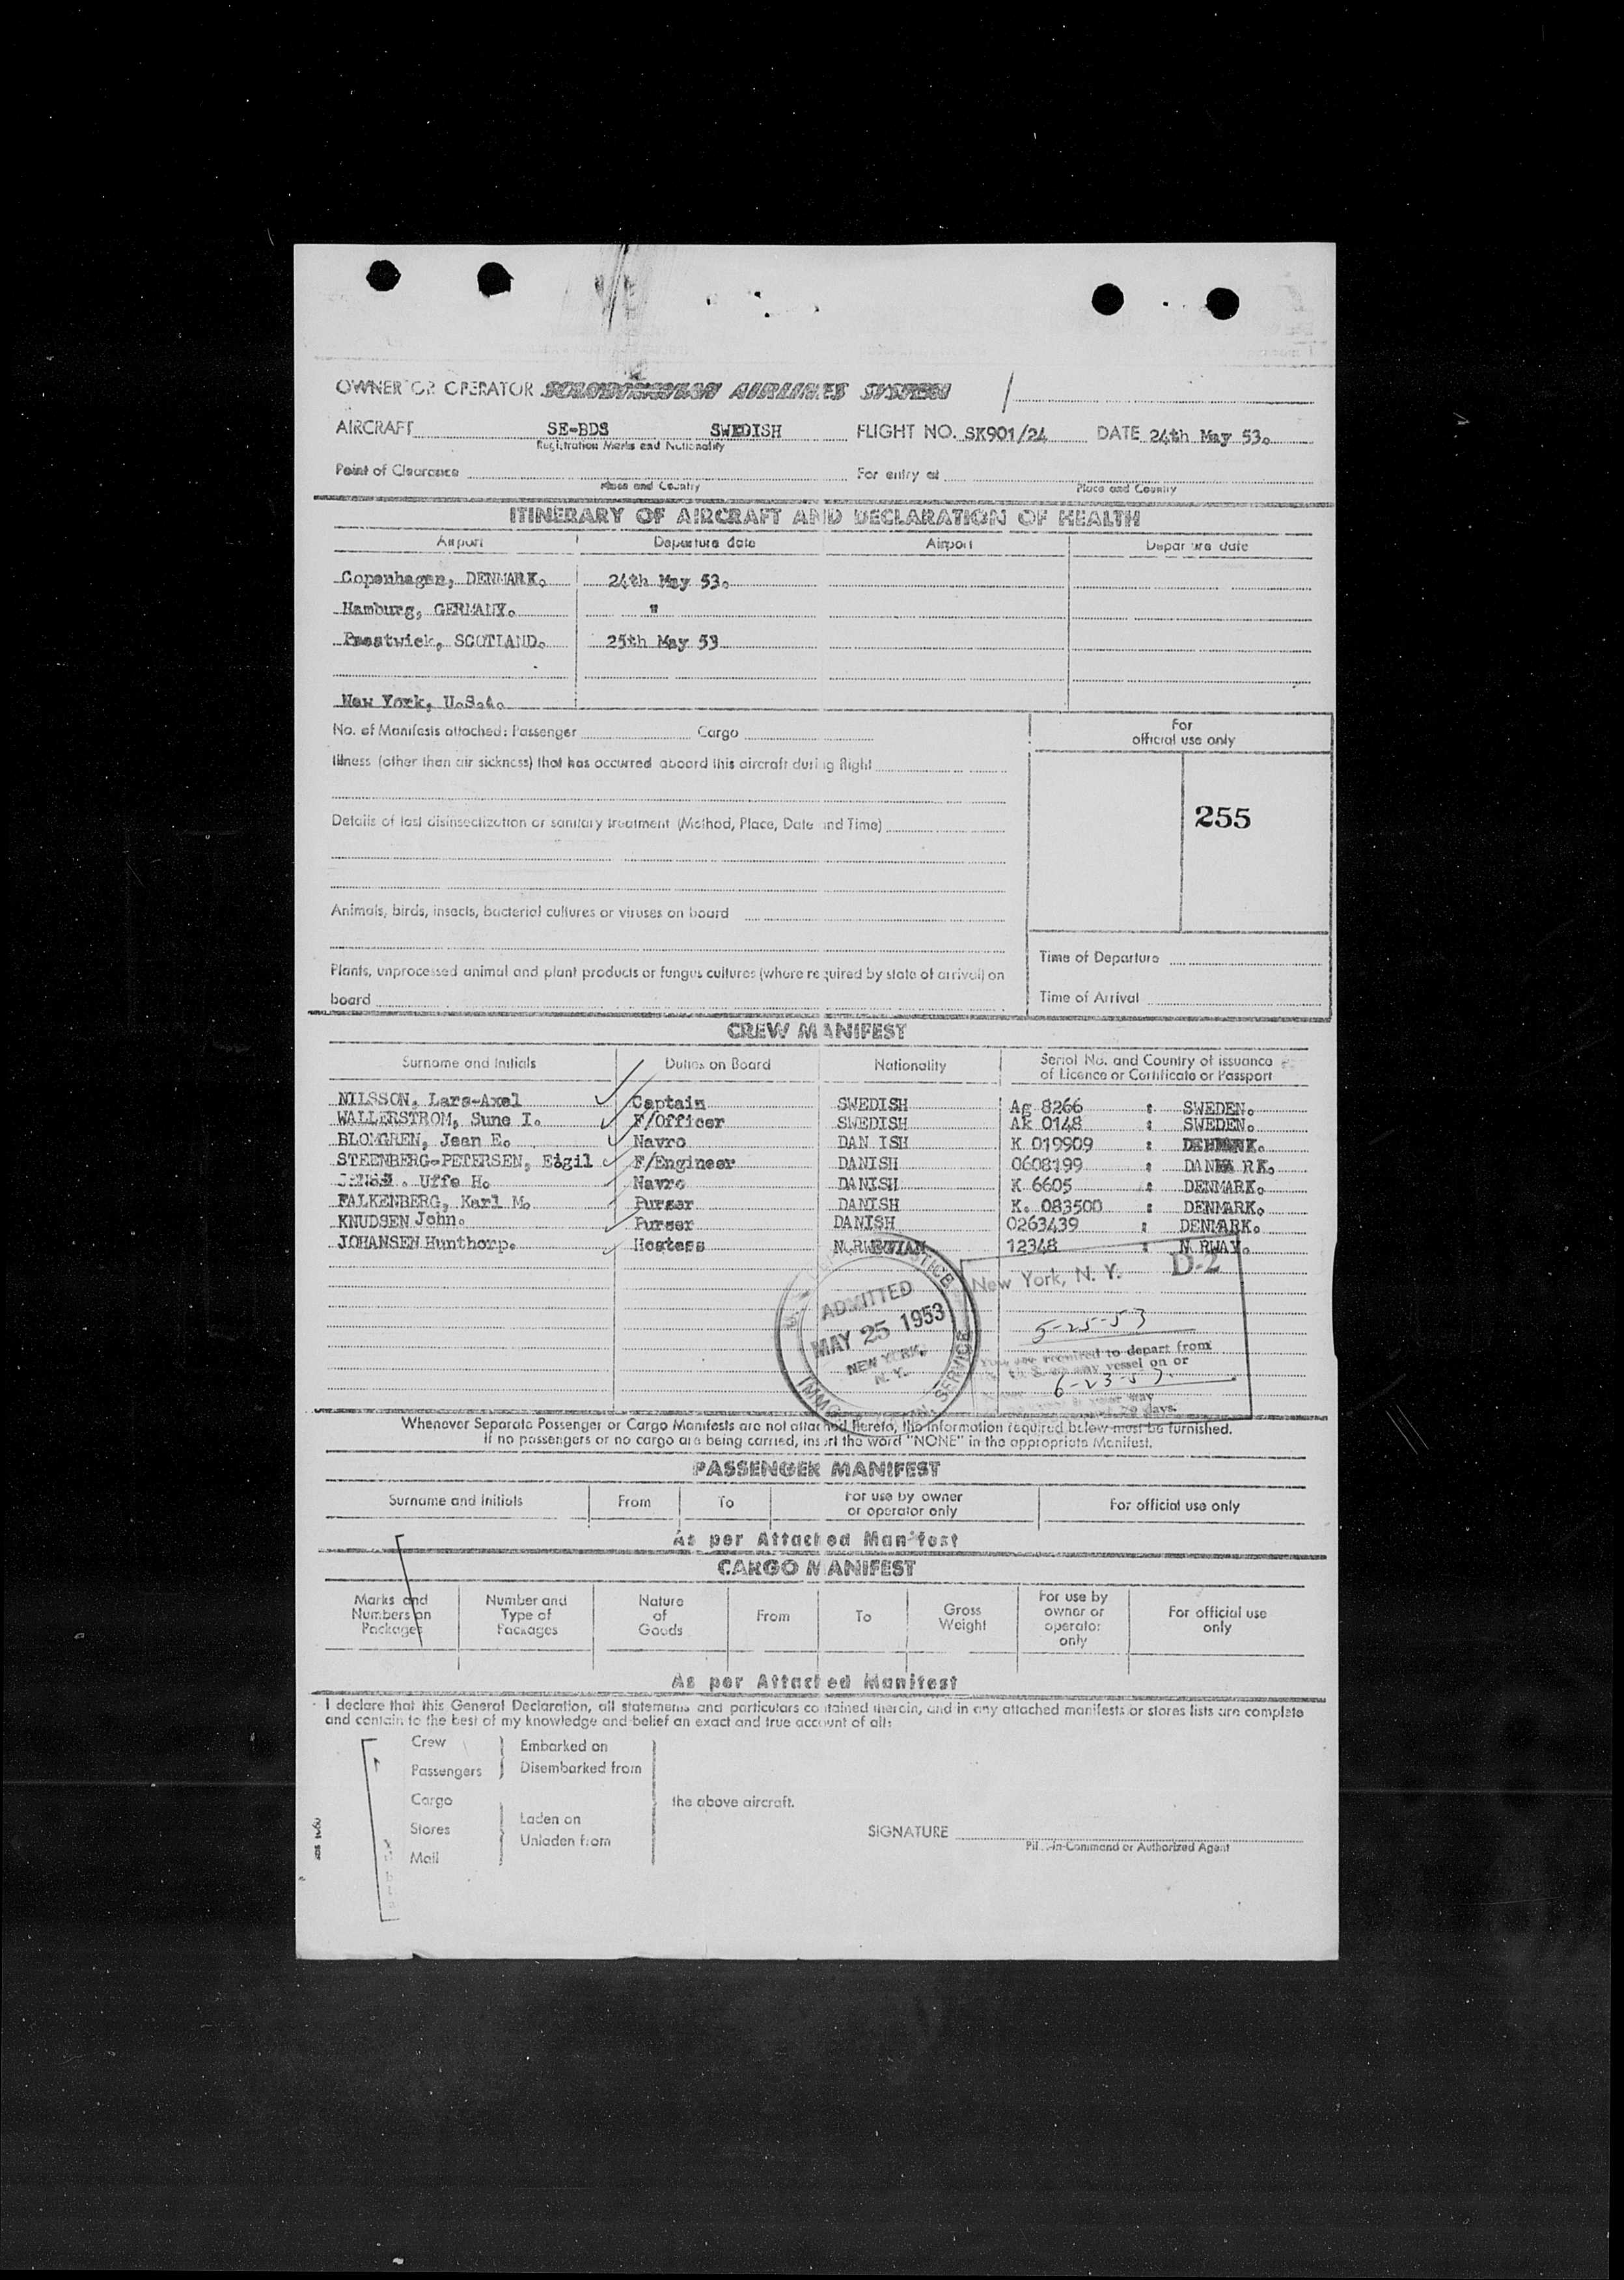 OWNER OR OPERATOR SCANDINAVIAN AIRLINES SYSTEM
AIRCRAFT SE-BDS SWEDISH FLIGHT NO. SK901/24 DATE 24th May 53.
Registration Marks and Nationality
Point of Clearance For entry at
Place and Country Place and Country
ITINERARY OF AIRCRAFT AND DECLARATION OF HEALTH
Airport Departure date Airport Departure date
Copenhagen, DENMARK. 24th May 53.
Hamburg, GERMANY. "
Prestwick, SCOTLAND. 25th May 53
New York, U.S.A.
No. of Manifests attached: Passenger Cargo
For
official use only
Illness (other than air sickness) that has occurred aboard this aircraft during flight
255
Details of last disinsectization or sanitary treatment (Method, Place, Date and Time)
Animals, birds, insects, bacterial cultures or viruses on board
Time of Departure
Plants, unprocessed animal and plant products or fungus cultures (where required by state of arrival) on
board
Time of Arrival
CREW MANIFEST
Surname and Initials Duties on Board Nationality Serial No. and Country of issuance
of Licence or Certificate or Passport
NILSSON, Lars-Axel Captain SWEDISH Ag 8266 : SWEDEN.
WALLERSTROM, Sune I. F/Officer SWEDISH Ak 0148 : SWEDEN.
BLOMGREN, Jean E. Navro DAN ISH K 019909 : DENMARK.
STEENBERG-PETERSEN, Eigil F/Engineer DANISH 0608199 : DANMA RK.
Uffe H. Navro DANISH K 6605 : DENMARK.
FALKENBERG, Karl M. Purser DANISH K. 083500 : DENMARK.
KNUDSEN John. Purser DANISH 0263439 : DENMARK.
JOHANSEN Hunthorp. Hostess N RWEGIAN 12348 : N RWAY.
New York, N. Y. D-2
ADMITTED
MAY 25 1953
NEW YORK,
N. Y.
5-25-53
You are required to depart from
any vessel on or
6-23-53
29 days.
Whenever Separate Passenger or Cargo Manifests are not attached hereto, the information required below must be furnished.
If no passengers or no cargo are being carried, insert the word "NONE" in the appropriate Manifest.
PASSENGER MANIFEST
Surname and Initials From To For use by owner
or operator only For official use only
As per Attached Manifest
CARGO MANIFEST
Marks and
Numbers on
Packages Number and
Type of
Packages Nature
of
Goods From To Gross
Weight For use by
owner or
operator
only For official use
only
As per Attached Manifest
I declare that this General Declaration, all statements and particulars contained therein, and in any attached manifests or stores lists are complete
and contain to the best of my knowledge and belief an exact and true account of all:
Crew Embarked on
Passengers Disembarked from
Cargo the above aircraft.
Stores Laden on
Unladen from
Mail
SIGNATURE
Pilot-in-Command or Authorized Agent